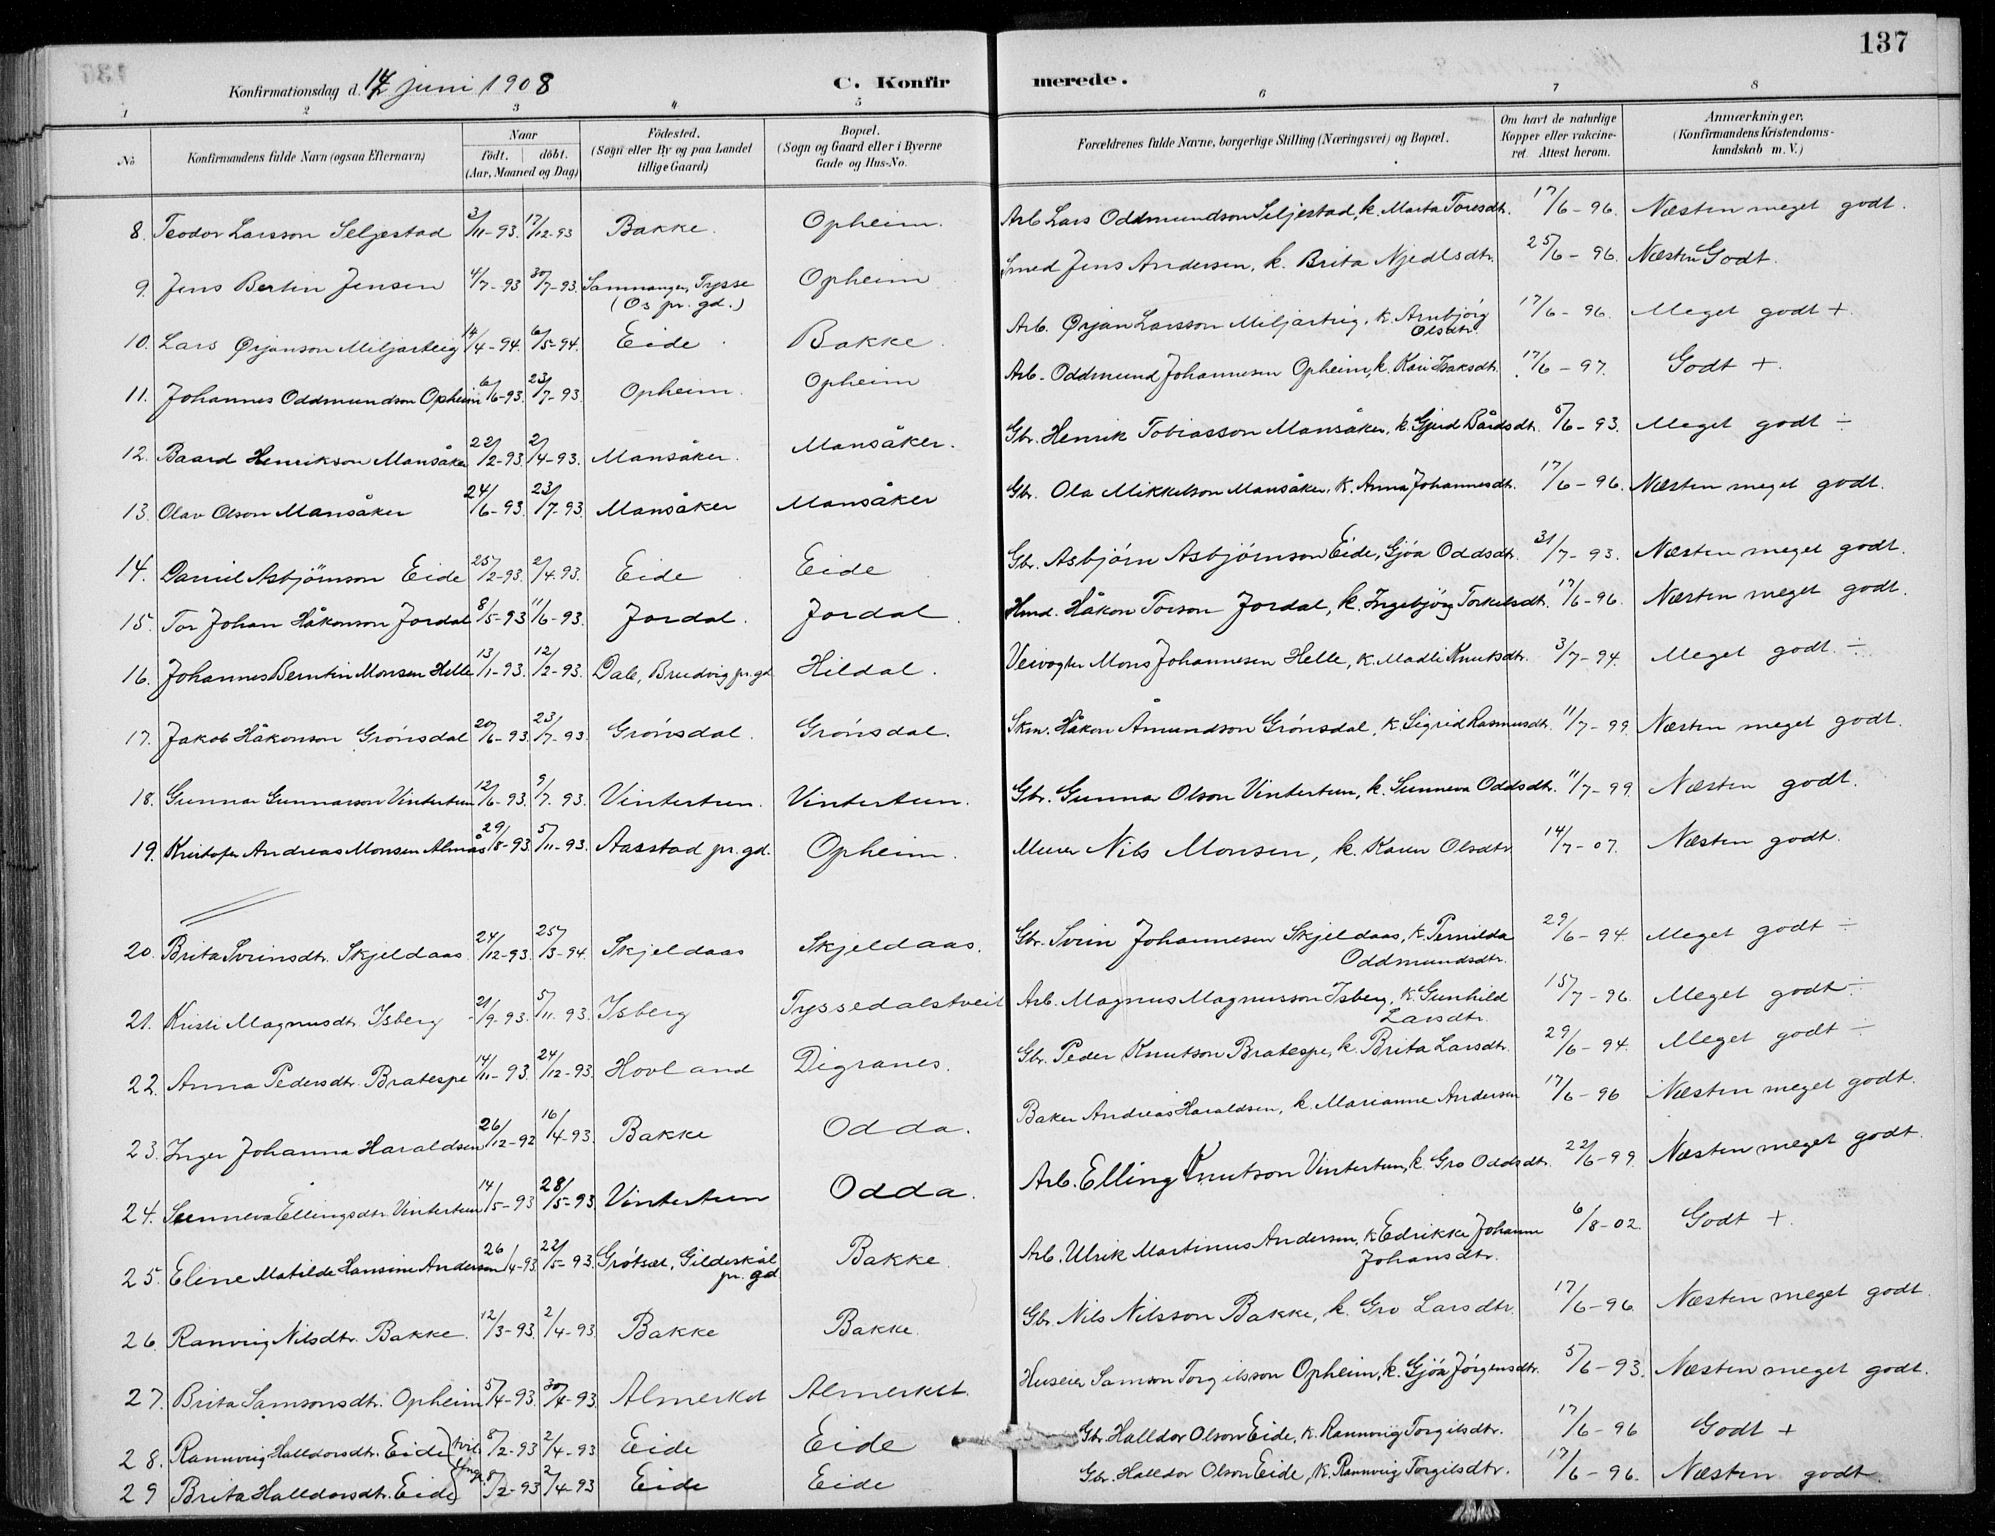 137
Konfirmationsdag d. 14 juni 1908
C. Konfirmerede.
1 2 3 4 5 6 7 8
No
Konfirmandens fulde Navn (ogsaa Efternavn)
Naar
födt. döbt.
(Aar, Maaned og Dag)
Födested.
(Sogn eller By og paa Landet
tillige Gaard)
Bopæl.
(Sogn og Gaard eller i Byerne
Gade og Hus-No.
Forældrenes fulde Navne, borgerlige Stilling (Næringsvei) og Bopæl.
Om havt de naturlige
Kopper eller vakcine-
ret. Attest herom.
Anmærkninger.
(Konfirmandens Kristendoms-
kundskab m. V.)
8. Teodor Larsson Seljestad 3/11-93. 17/12-93 Bakke. Opheim. Arb. Lars Oddmundson Seljestad, k. Marta Toresdtr. 17/6-96. Næsten meget godt.
9. Jens Bertin Jensen 4/7-93 30/7-93. Samnanger, Tysse Opheim Smed Jens Andersen, k. Brita Njedlsdtr. 25/6-96. Næsten Godt.
(Os pr. gd.)
10. Lars Ørjanson Miljarteig 14/4-94. 6/5-94. Eide Bakke. Arb. Ørjan Larsson Miljarteig, k. Arnbjörg 17/6-96. Meget godt +
Olsdtr.
11. Johannes Oddmundson Opheim 6/6-93. 23/7-93. Opheim. Opheim Arb. Oddmund Johannesen Opheim, k. Kari Isaksdtr. 17/6-97. Godt +.
12. Baard Henrikson Mansåker 22/2-93. 2/4-93. Mansåker. Mansåker. Gbr. Henrik Tobiasson Mansåker, k. Gjerd Bårdsdtr. 5/6-93. Meget godt ÷
13. Olav Olson Mansåker 24/6-93. 23/7-93. Mansåker Mansåker Gbr. Ola Mikkelson Mansåker, k. Anna Johannesdtr. 17/6-96. Næsten meget godt.
14. Daniel Asbjörnson Eide 25/2-93. 2/4-93. Eide Eide Gbr. Asbjörn Asbjörnson Eide, Gjöa Oddsdtr. 31/7-93. Næsten meget godt.
15. Tor Johan Håkonson Jordal 8/5-93 11/6-93. Jordal. Jordal. Hmd. Håkon Torson Jordal, k. Ingebjörg Torkelsdtr. 17/6-96. Næsten meget godt.
16. Johannes Berntin Monsen Helle 13/1-93. 12/2-93. Dale, Bruvig pr. gd Hildal. Veivogter Mons Johannesen Helle, k. Madli Knutsdtr. 3/7-94. Meget godt. ÷
17. Jakob Håkonson Grönsdal 20/6-93. 23/7-93. Grönsdal. Grönsdal. Skm. Håkon Åmundson Grönsdal, k. Sigrid Rasmusdtr. 11/7-99. Næsten meget godt.
18. Gunnar Gunnarson Vintertun 12/6-93. 9/7-93. Vintertun. Vintertun. Gbr. Gunnar Olson Vintertun, k. Sunneva Oddsdtr. 11/7-99. Næsten godt.
19. Kristofer Andreas Monsen Almås 29/8-93. 5/11-93. Aasstad pr. gd. Opheim. Murer Nils Monsen, k. Karen Olsdtr 14/7-07. Næsten godt.
20. Brita Sveinsdtr. Skjeldaas 24/12-93. 25/3-94. Skjeldaas Skjeldaas. Gbr. Svein Johannesen Skjeldaas, k. Pernilda 29/6-94. Meget godt ÷
Oddmundsdtr.
21. Kristi Magnusdtr. Isberg 21/9-93. 5/11-93. Isberg Tyssedalstveit Arb. Magnus Magnusson Isberg, k. Gunhild 15/7-96. Meget godt ÷
Larsdtr.
22. Anna Pedersdtr. Bratespe 14/11-93. 24/12-93. Hovland Digranes. Gbr. Peder Knutson Bratespe, k. Brita Larsdtr. 29/6-94. Meget godt ÷
23. Inger Johanna Haraldsen 26/12-92 16/4-93. Bakke Odda. Baker Andreas Haraldsen, k. Marianne Andersen 17/6-96 Næsten meget godt.
24. Sunneva Ellingsdtr. Vintertun 14/5-93 28/5-93 Vintertun Odda. Arb. Elling Knutson Vintertun, k. Gro Oddsdtr. 22/6-99. Næsten meget godt.
25. Eline Matilde Hansine Andersen 26/4-93. 22/5-93. Grötsæt, Gildeskål Bakke. Arb. Ulrik Martinus Andersen, k. Edrikke Johanne 6/8-02. Godt +.
pr. gd Johansdtr.
26. Ranveig Nilsdtr. Bakke. 12/3-93. 2/4-93. Bakke Bakke. Gbr. Nils Nilsson Bakke, k. Gro Larsdtr. 17/6-96. Næsten meget godt.
27. Brita Samsonsdtr. Opheim 5/4-93. 30/4-93. Almerket Almerket. Huseier Samson Torgilsson Opheim, k. Gjöa Jörgensdtr. 5/6-93. Næsten meget godt.
28. Rannveig Halldorsdtr. Eide tvil- 5/2-93 2/4-93 Eide Eide Gbr. Halldor Olson Eide, k. Rannveig Torgilsdtr. 17/6-96 Godt +
29 Brita Halldorsdtr. Eide linge 5/2-93 2/4-93 Eide Eide Gbr. Halldor Olson Eide, k. Rannveig Torgilsdtr. 17/6-96. Næsten godt.